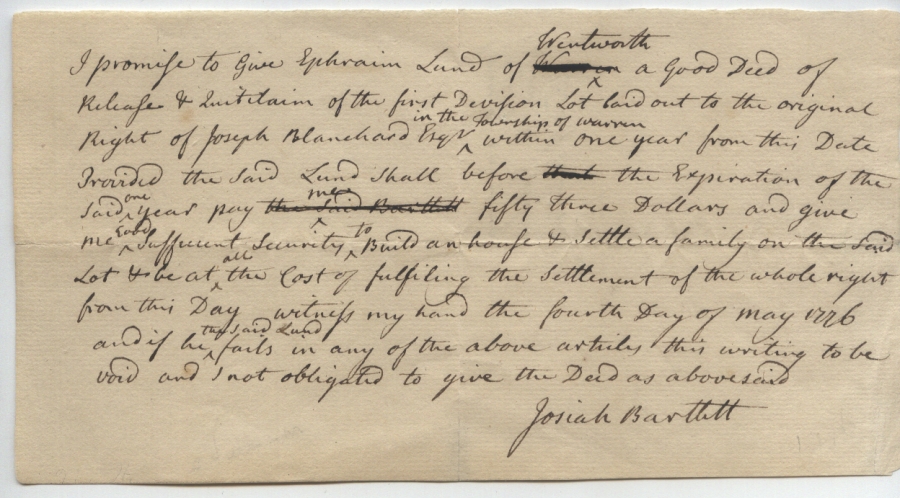 Wentworth
I promise to Give Ephraim Lund of Warren a Good Deed of
Release & Quitclaim of the first Division Lot laid out to the original
in the Township of Warren
Right of Joseph Blanchard Esqr within one year from this Date
Provided the Said Lund Shall before that the Expiration of the
one me
Said year pay the Said Bartlett fifty three Dollars and give
Good to
me Sufficient Security Build an house & Settle a family on the Said
all
Lot & be at the Cost of fulfiling the Settlement of the whole right
from this Day witness my hand the fourth Day of may 1776
the said Lund
and if he fails in any of the above articles this writing to be
void and I not obligated to give the Deed as abovesaid
Josiah Bartlett